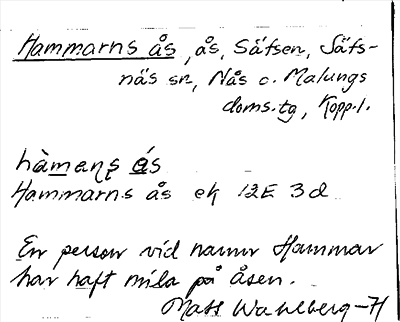 Hammarns ås, ås, Säfsen, Säfs-
näs sn, Nås o. Malungs
doms.tg, Kopp.l.
hàmaṇṣ ás
Hammarns ås ek 12E 3d
En person vid namn Hammar
har haft mila på åsen.
Mats Wahlberg-71